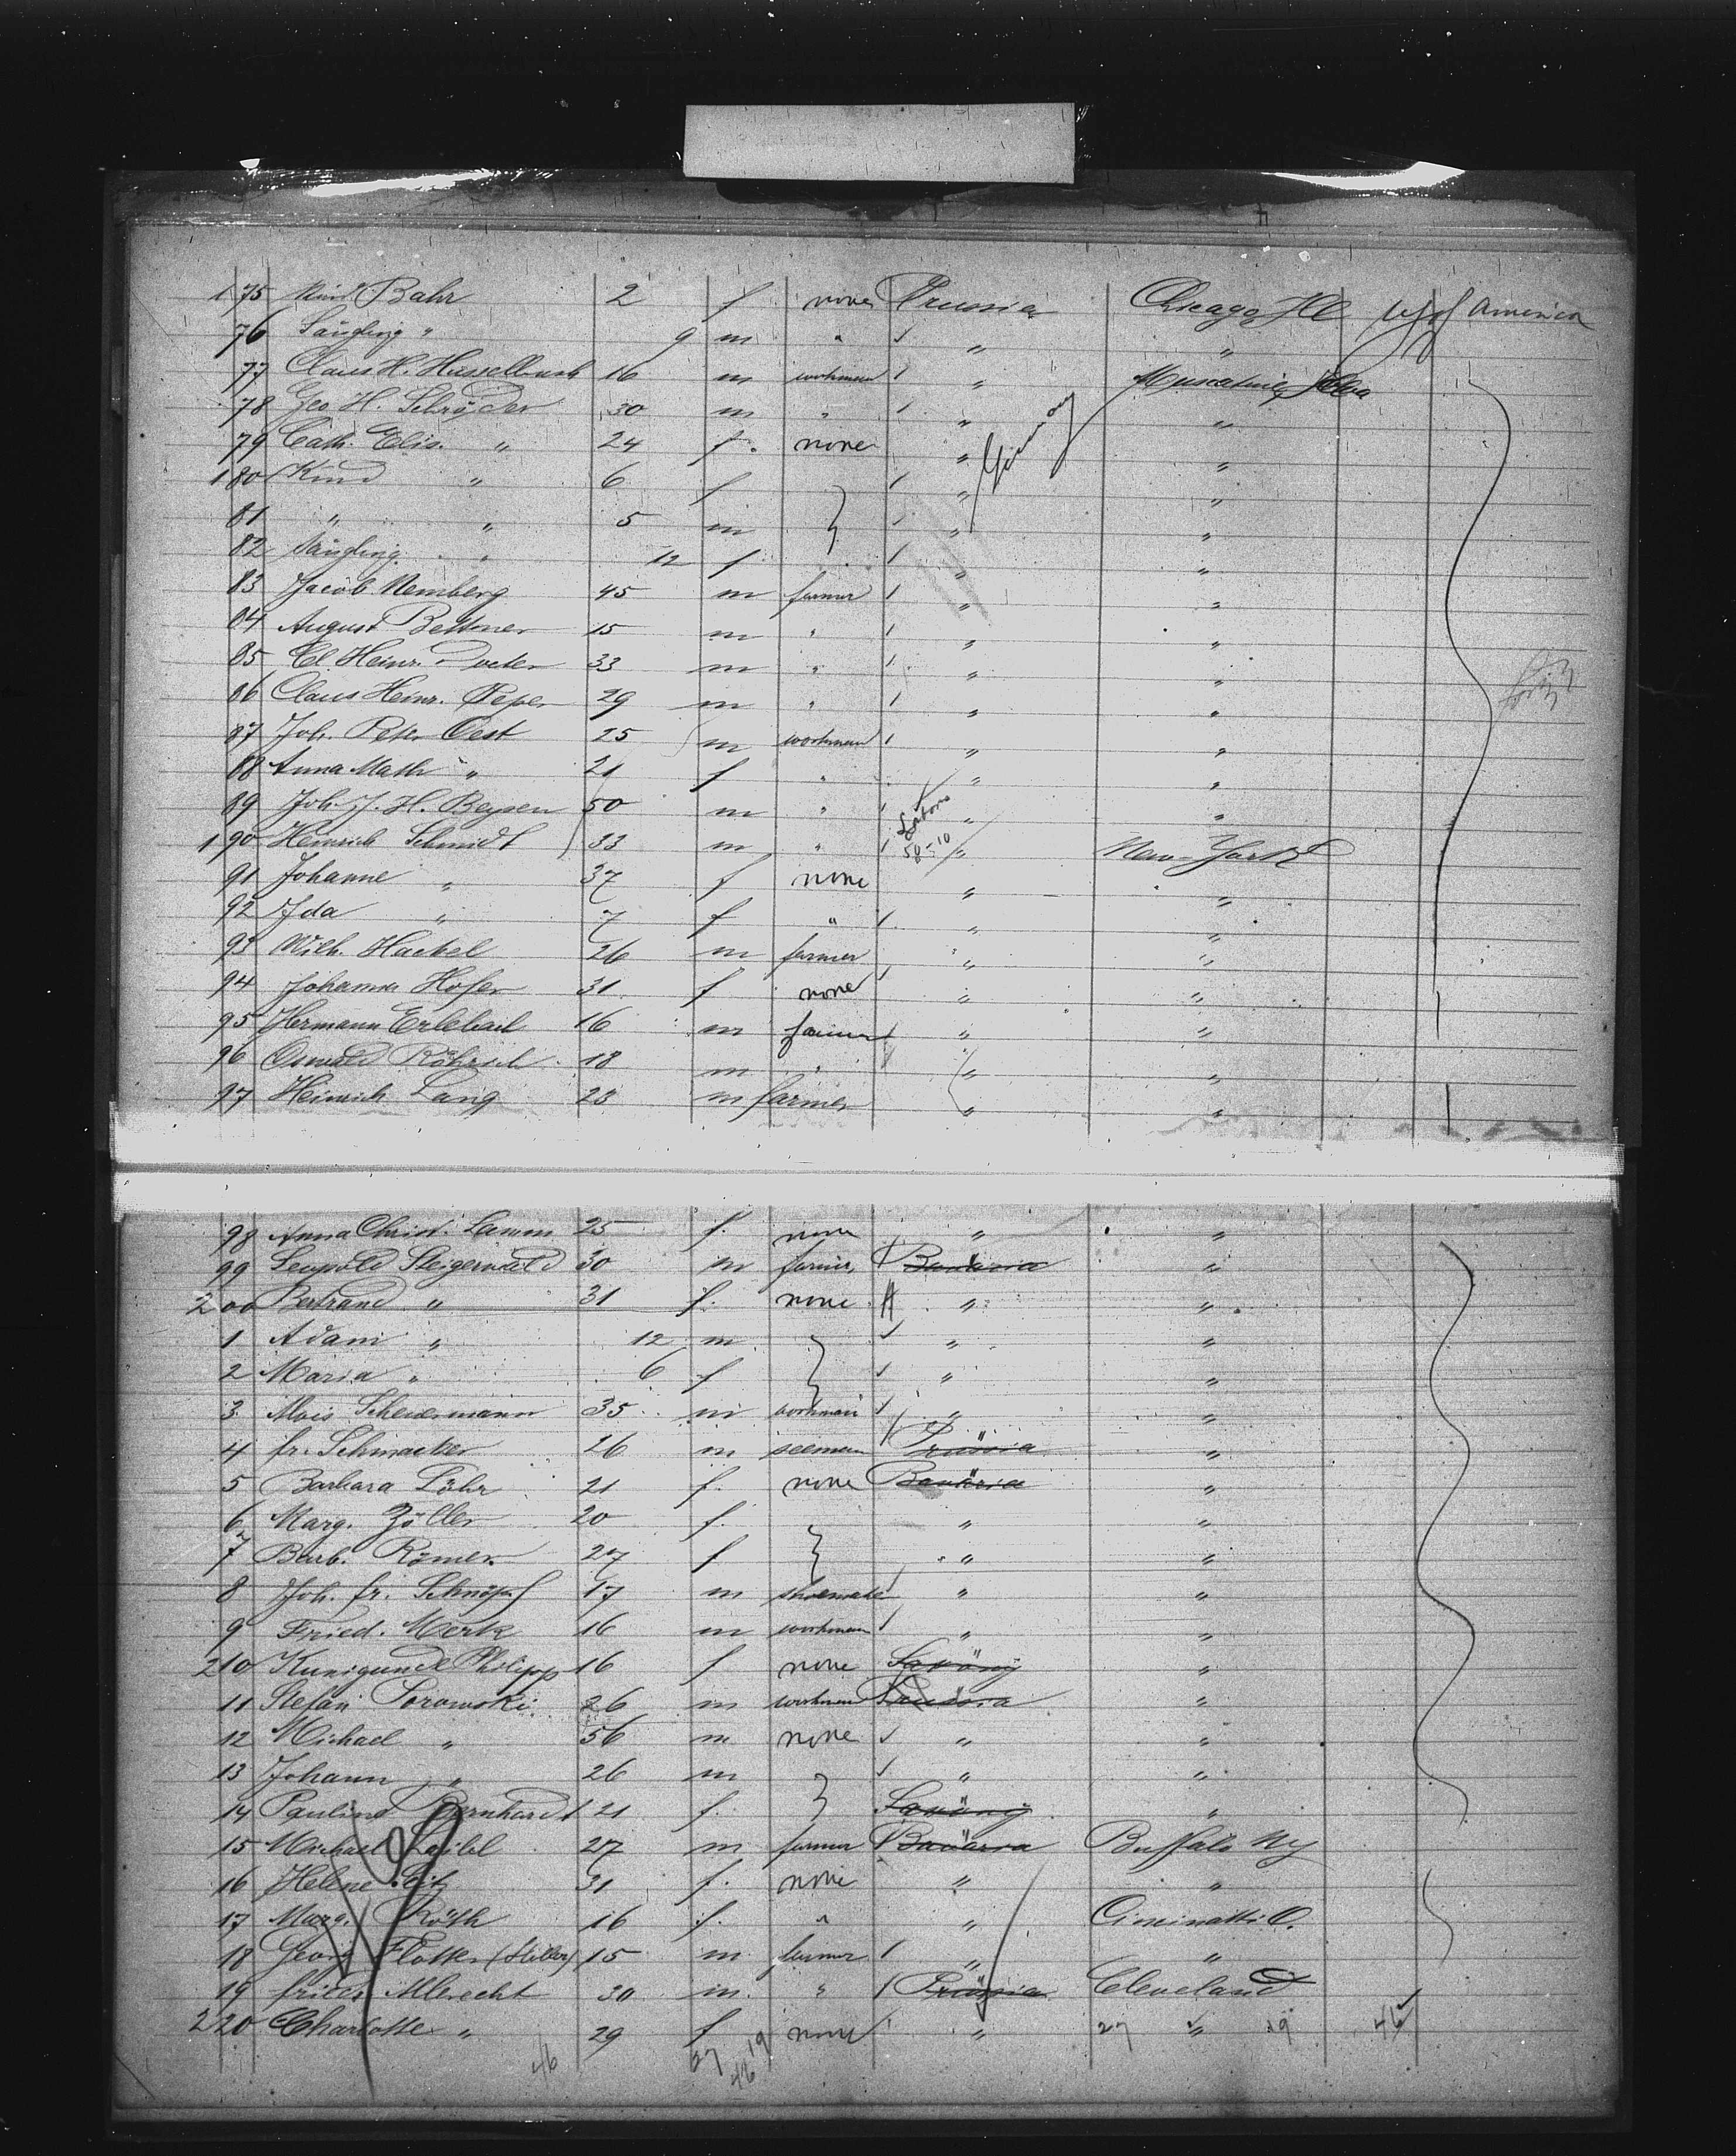 175 Kind Bahr 2 f none Prussia Chicago Ill of America
76 Säugling " 9 m " " "
77 Claus H. Hasselbusch 16 m workman " Muscatine
78 Geo H. Schröder 30 m " " "
79 Cath. Elis. " 24 f. none " Germany "
180 Kind " 6 f " "
81 " " 5 m " "
82 Säugling " 12 f " "
83 Jacob Nemberg 45 m farmer " "
84 August Bettoner 15 m " " "
85 Cl Heinr. 33 m " " "
86 Claus Heinr. Peper 29 m " " "
87 Joh. Peter Oest 25 m workman " "
88 Anna Math " 21 f " " "
89 Joh. J. H. Beysen 50 m " " "
190 Heinrich Schmidt 33 m " 58-10 " New-York
91 Johanne " 37 f none " "
92 Ida " 7 f " " "
93 Wilh. Hackel 26 m farmer " "
94 Johanna Hofer 31 f none " "
95 Hermann Erlebach 16 m farmer " "
96 Oswald Röhrsch 18 m " " "
97 Heinrich Lang 23 m farmer " "
98 Anna Christ. Lamm 25 f. none " "
99 Leopold Steigerwald 30 m farmer Bavaria "
200 Bertrand " 31 f. none " "
1 Adam " 12 m " "
2 Maria " 6 f " "
3 Alois Scheuermann 35 m workman " "
4 fr. Schmacker 26 m seeman Prussia "
5 Barbara Löhr 21 f. none Bavaria "
6 Marg. Zöller 20 f. " "
7 Barb. Römer 27 f " "
8 Joh. fr. Schnöpf 17 m shoemaker " "
9 Fried. Merk 16 m workman " "
210 Kunigunde Philipp 16 f none Saxony "
11 Stefan Porowski 26 m workman Prussia "
12 Michael " 56 m none " "
13 Johann " 26 m " "
14 Pauline Bernhardt 21 f. Saxony "
15 Michael Laibl 27 m farmer Bavaria Buffalo Ny
16 Helene 31 f. none " "
17 Marg. Röth 16 f. " " Cincinatti O.
18 Georg Flotter 15 m farmer " "
19 frider Albrecht 30 m. " Prussia Cleveland
220 Charlotte " 29 f none " 27 " 19 46
46 27 19
46